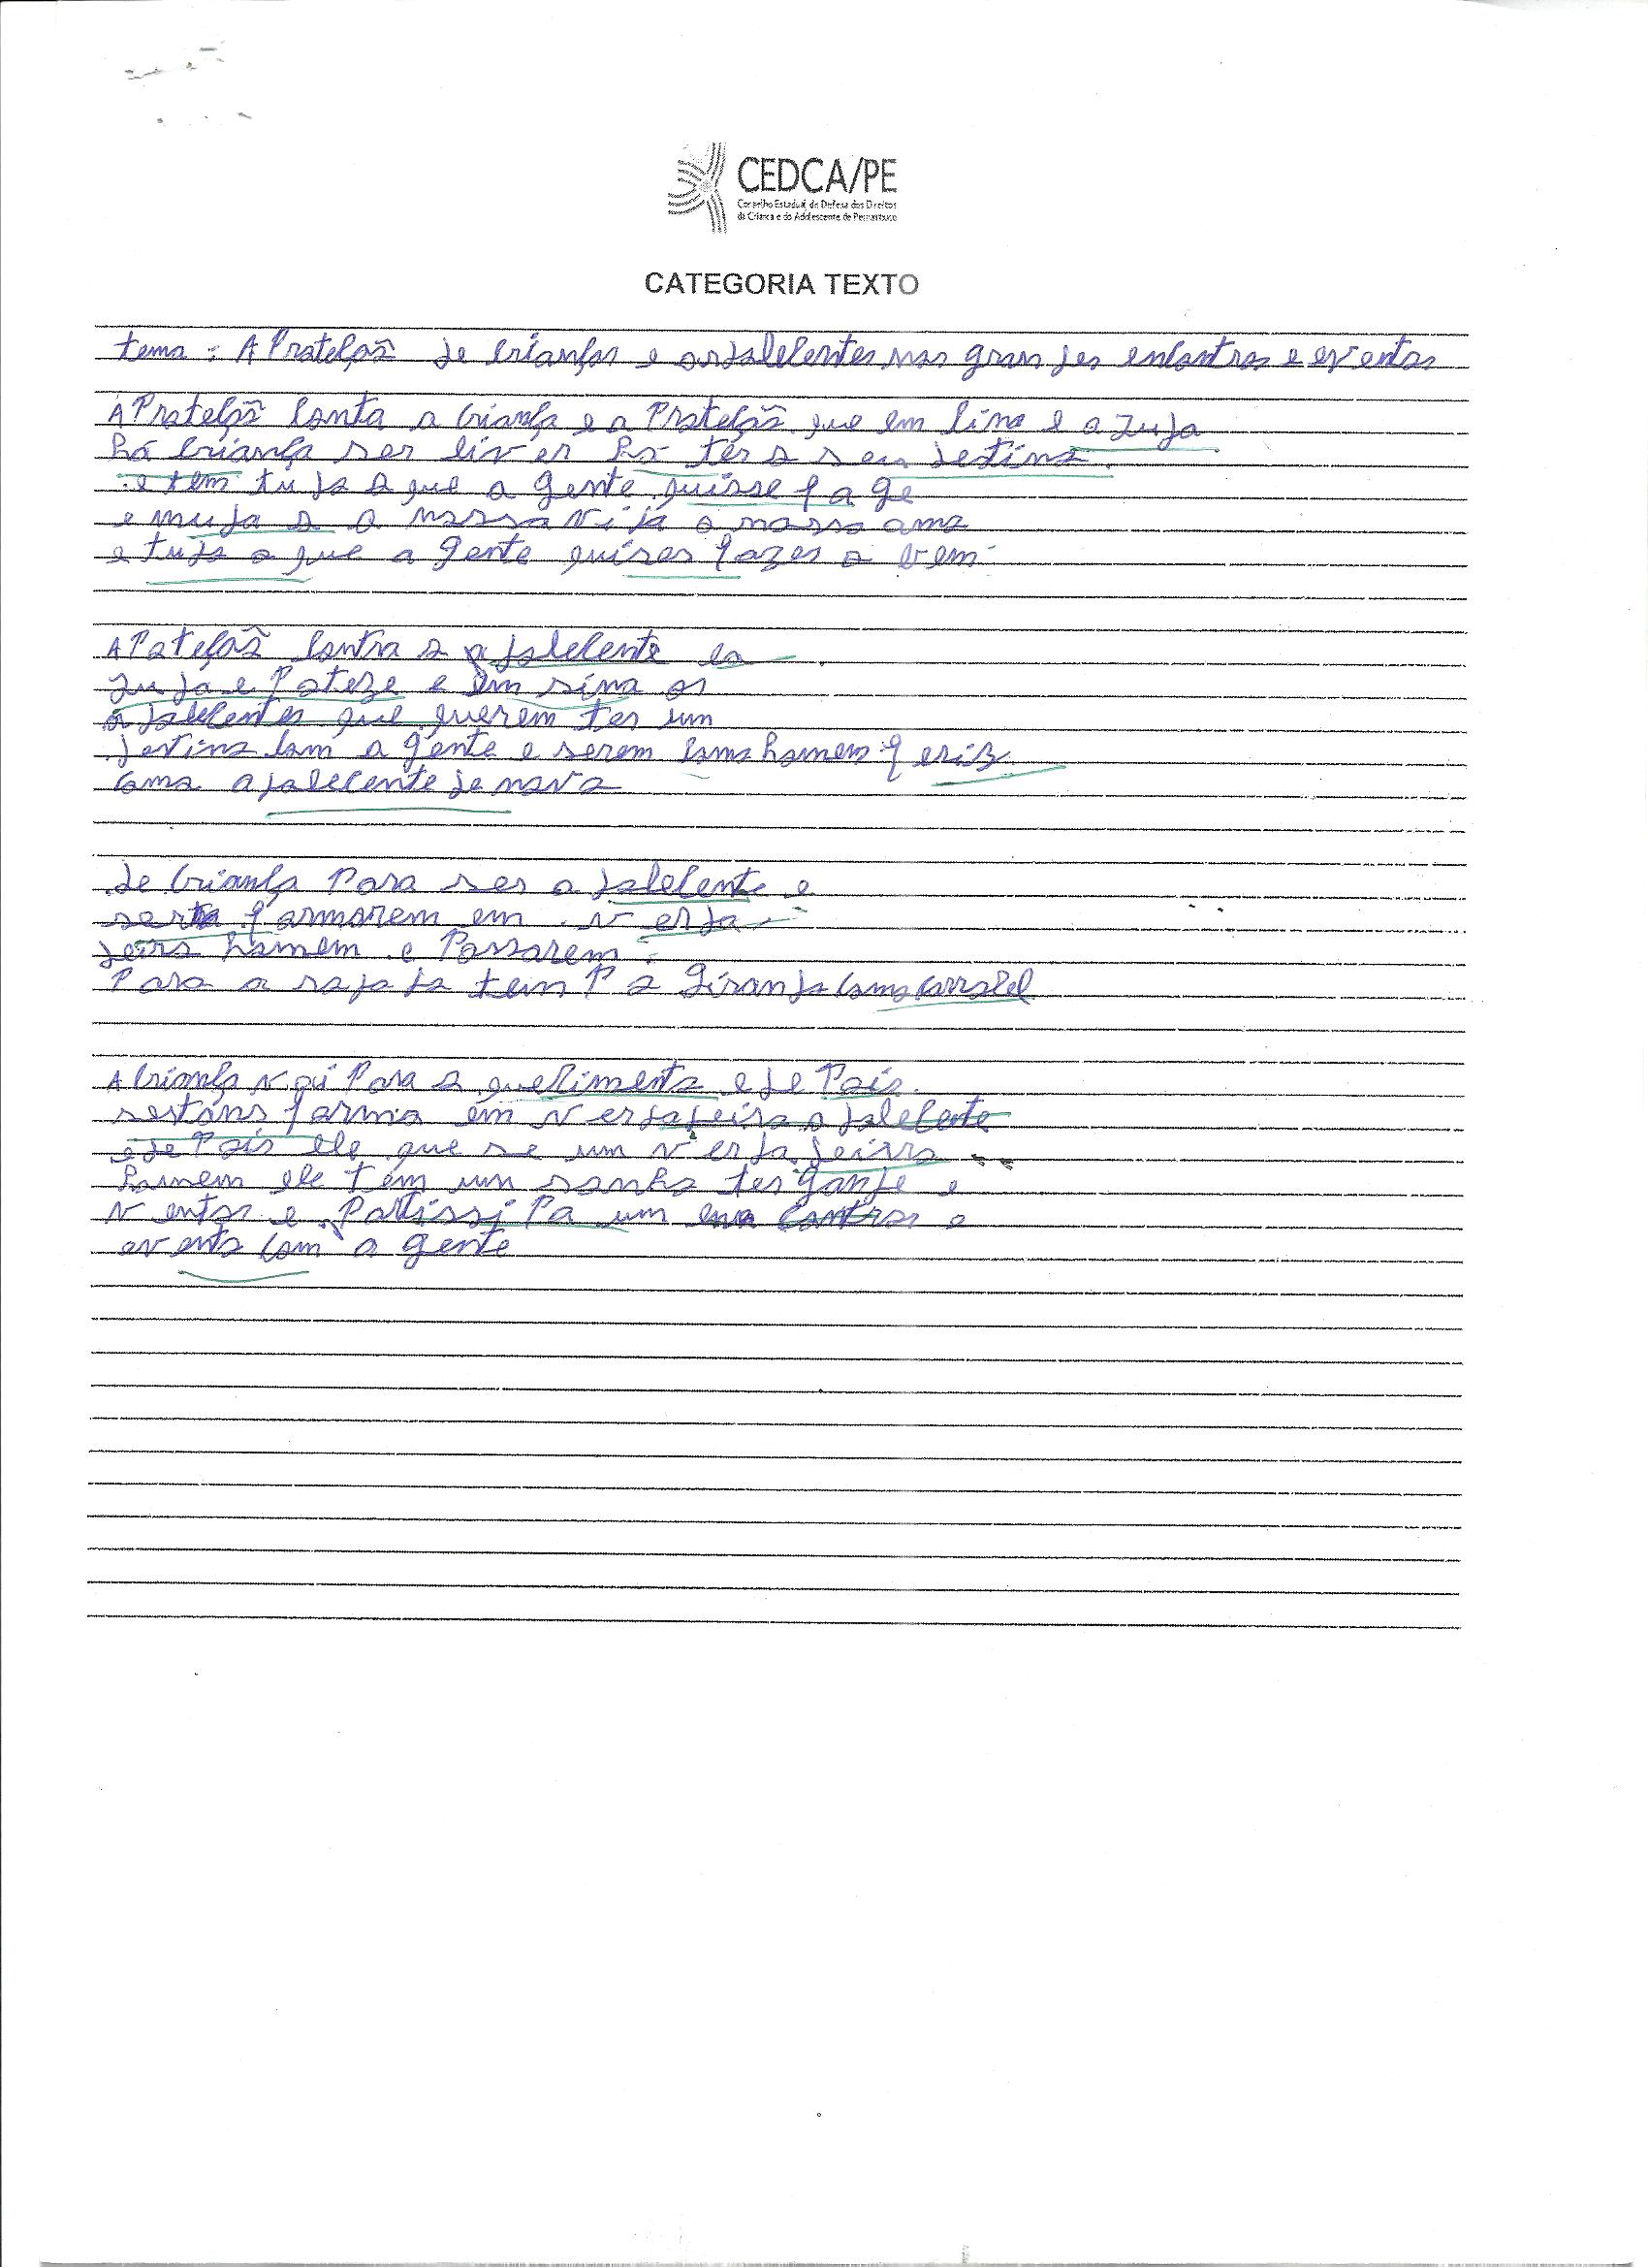 CEDCA/PE
Conselho Estadual de Defesa dos Direitos
da Criança e do Adolescente de Pernambuco
CATEGORIA TEXTO
tema: A Proteçoã de crianças e os adolecentes nos grandes encontros e eventos
A Proteçoã conta a criança e a Proteçoã que em cima e a Juda
há criança ser liver há ter o seu destino.
e tem tudo o que a gente quisse fage
e muda o a nossa vida o nosso amo
e tudo o que a gente quiser fazer o bem
A Poteçoã contra o adolecente ea
Juda e Poteze e em sina os
adolecentes que querem ter um
destino com a gente e serem como homem feris
como adolecente de novo
de criança Para ser adolecente e
formorem em verda
deiro homem e Possarem
Para a rafada tem P o Giranda como carrocel
A criança vai Para o quecimento e de Pois
sestons forma em verdadeiro adolecente
e de Pois ele que se um verda deiro
homem ele tem um sonho ter gande e
ventos e Patissi Pa um encontros e
evento com a gente